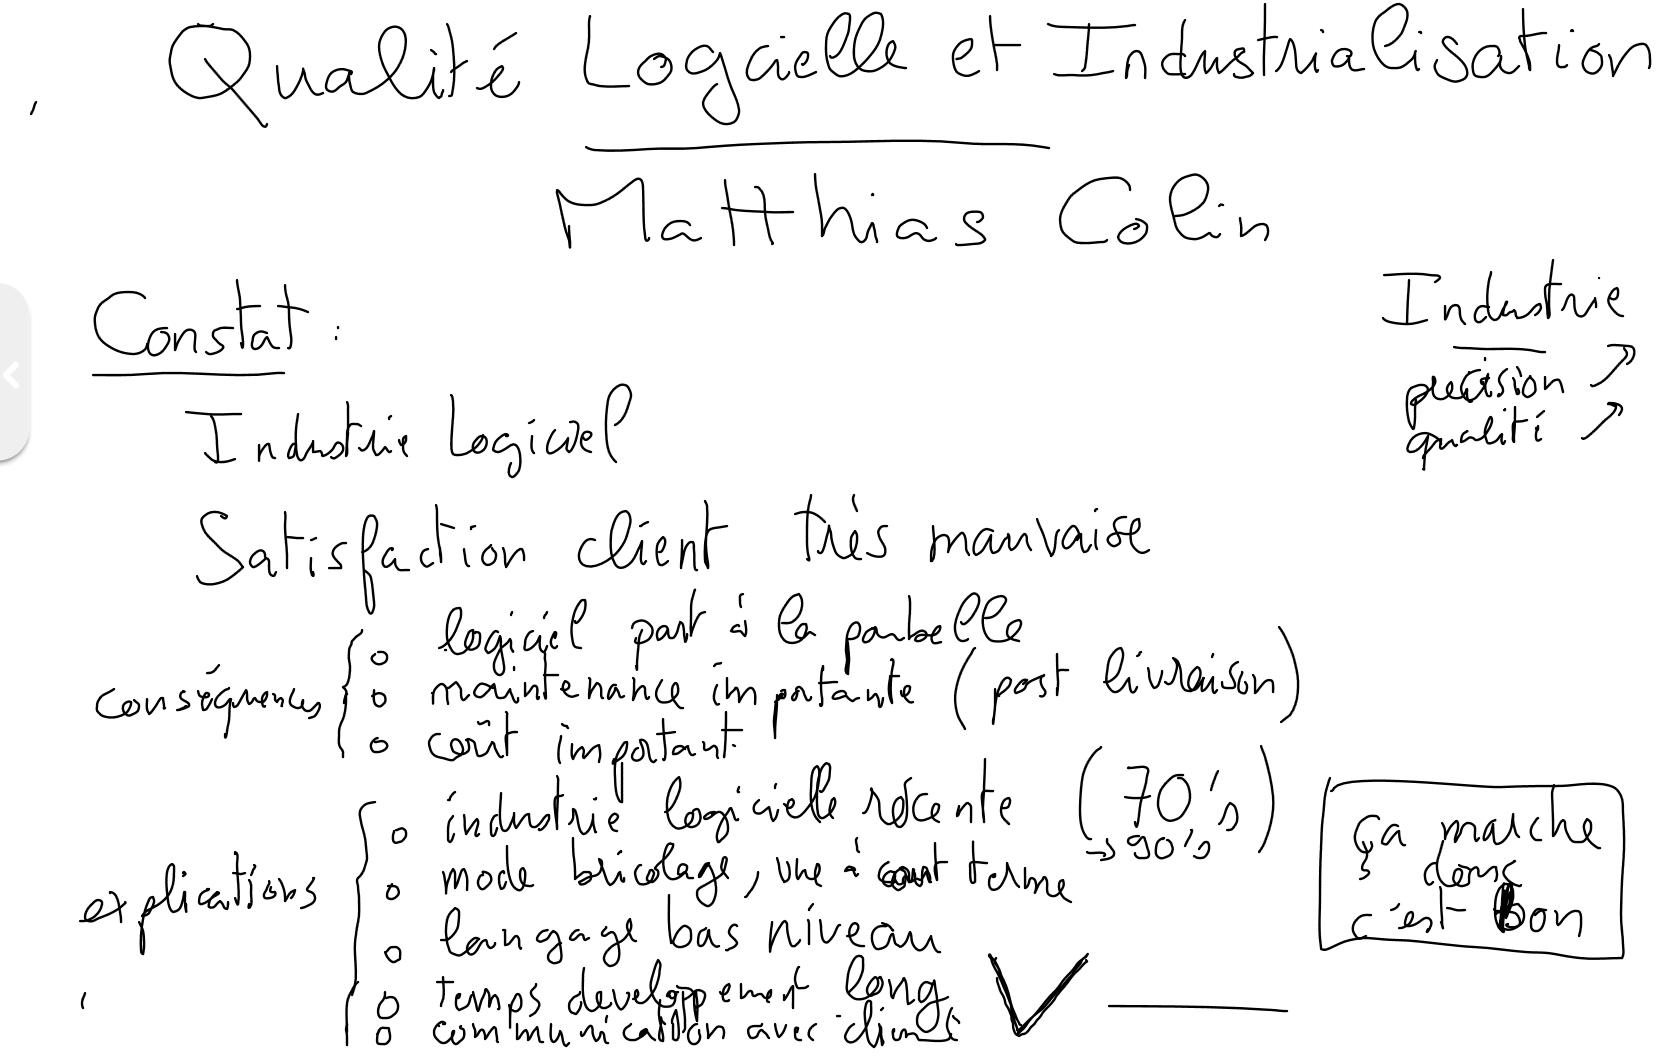 Qualité Logicielle et Industrialisation
Matthias Colin
Constat :
Industrie
précision ↗
qualité ↗
Industrie Logiciel
Satisfaction client très mauvaise
conséquences
o logiciel part à la poubelle
o maintenance importante (post livraison)
o coût important
explications
o industrie logicielle récente (70's)
→ 90's
o mode bricolage, vue à court terme
o langage bas niveau
o temps developpement long
o communication avec client
ça marche
donc
c'est bon